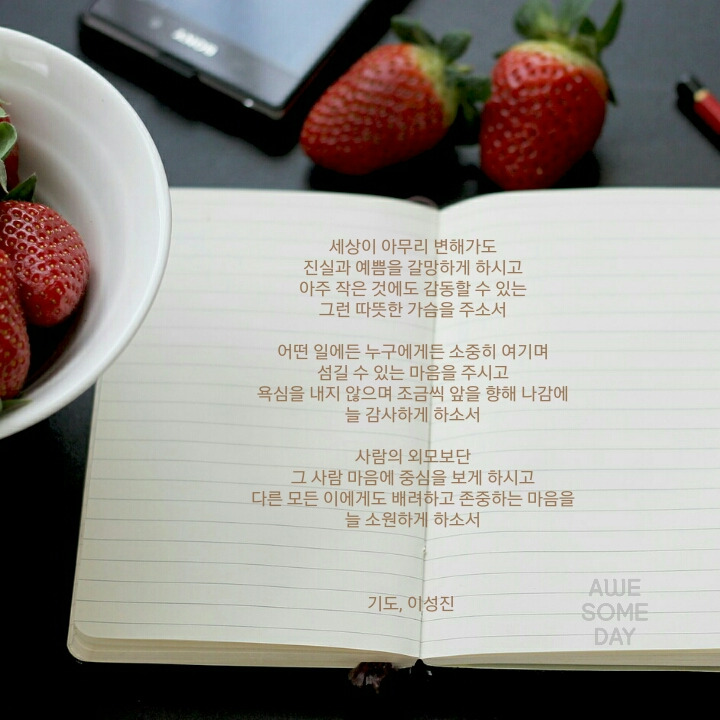 SONY
세상이 아무리 변해가도
진실과 예쁨을 갈망하게 하시고
아주 작은 것에도 감동할 수 있는
그런 따뜻한 가슴을 주소서
어떤 일에든 누구에게든 소중히 여기며
섬길 수 있는 마음을 주시고
욕심을 내지 않으며 조금씩 앞을 향해 나감에
늘 감사하게 하소서
사람의 외모보단
그 사람 마음에 중심을 보게 하시고
다른 모든 이에게도 배려하고 존중하는 마음을
늘 소원하게 하소서
기도, 이성진
AWE
SOME
DAY